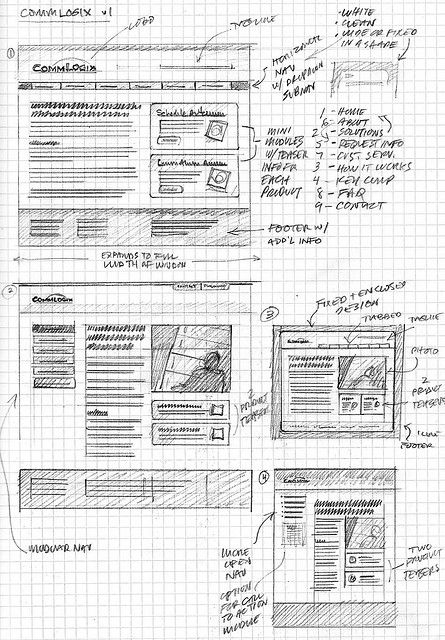 COMMLOGIX v1
LOGO
TAGLINE
· WHITE
· CLEAN
· WIDE OR FIXED
IN A SHAPE
1
COMMLOGIX
HORIZONTAL
NAV
W/ DROPDOWN
SUBNAV
MINI
MODULES
W/TEASER
INFO FOR
EACH
PRODUCT
1 - HOME
6 - ABOUT
2 - SOLUTIONS
5 - REQUEST INFO
7 - CUST. SERV.
3 - HOW IT WORKS
4 - KEY COMP
8 - FAQ
9 - CONTACT
FOOTER W/
ADD'L INFO
EXPANDS TO FILL
WIDTH OF WINDOW
2
COMMLOGIX
2
PRODUCT
TEASERS
MODULAR NAV
3
FIXED + ENCLOSED
DESIGN
TABBED
TAGLINE
PHOTO
2
PRODUCT
TEASERS
FOOTER
4
MORE
OPEN
NAV
OPTION
FOR CALL
TO ACTION
MODULE
TWO
PRODUCT
TEASERS